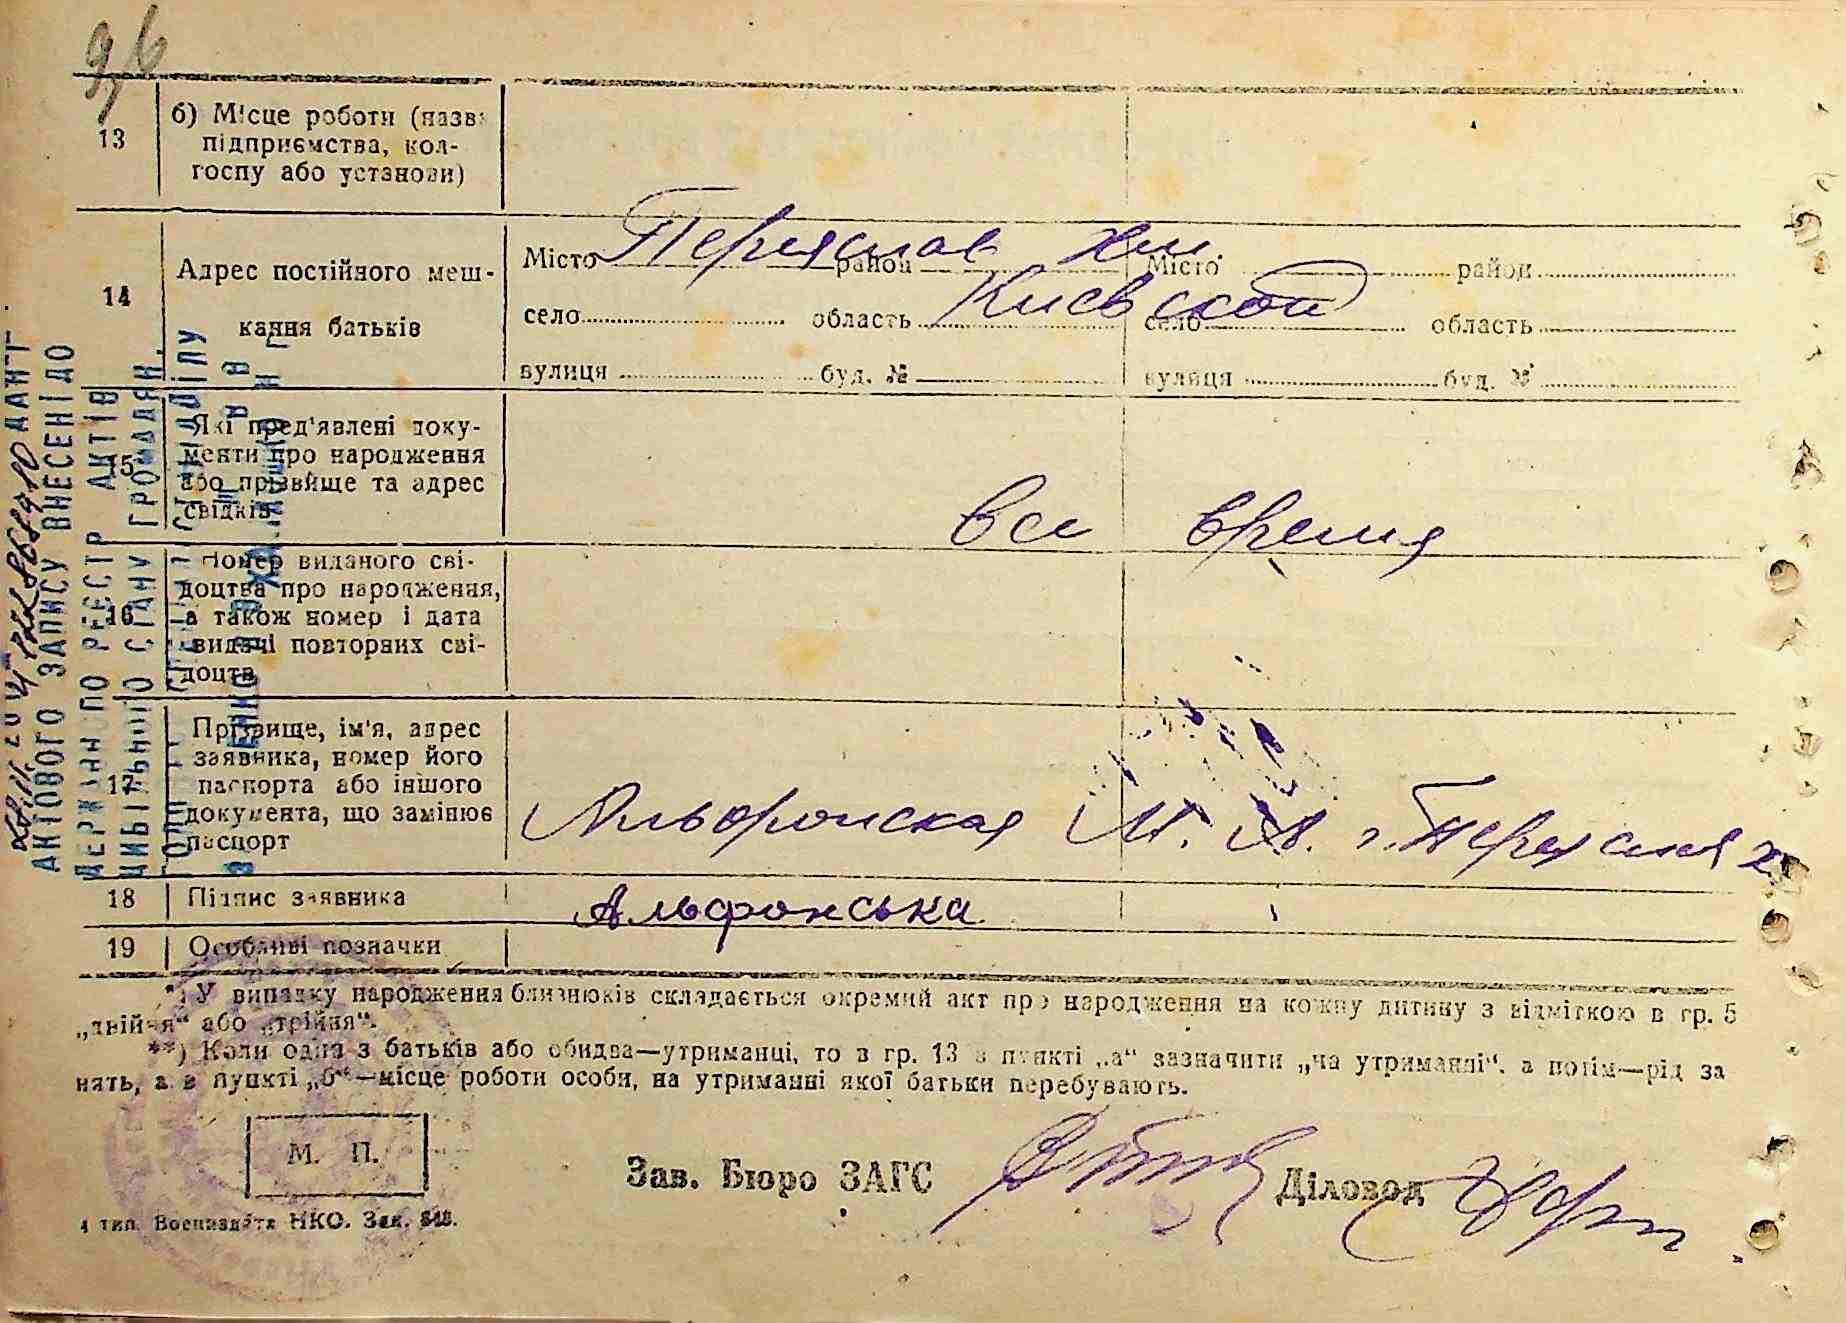 96
13 б) Місце роботи (назва
підприємства, кол-
госпу або установи)
14 Адрес постійного меш-
кання батьків
Місто Переяслав район Хм. Місто район
село область Киевской село область
вулиця буд. № вулиця буд. №
15 Які пред'явлені доку-
менти про народження
або прізвище та адрес
свідків
все время
16 Номер виданого сві-
доцтва про народження,
а також номер і дата
видачі повторних сві-
доцтв
17 Прізвище, ім'я, адрес
заявника, номер його
паспорта або іншого
документа, що замінює
паспорт
Альфонская М. А. г. Переяслав Х.
18 Підпис заявника Альфонська
19 Особливі позначки
*) У випадку народження близнюків складається окремий акт про народження на кожну дитину з відміткою в гр. 5
„двійня“ або „трійня“.
**) Коли один з батьків або обидва—утриманці, то в гр. 13 в пункті „а“ зазначити „на утриманні“, а потім—рід за
нять, а в пункті „б“—місце роботи особи, на утриманні якої батьки перебувають.
М. П.
Зав. Бюро ЗАГС Діловод
4 тип. Воениздата НКО. Зак. 848.
АКТОВОГО ЗАПИСУ ВНЕСЕНІ ДО
ДЕРЖАВНОГО РЕЄСТРУ АКТІВ
ЦИВІЛЬНОГО СТАНУ ГРОМАДЯН.